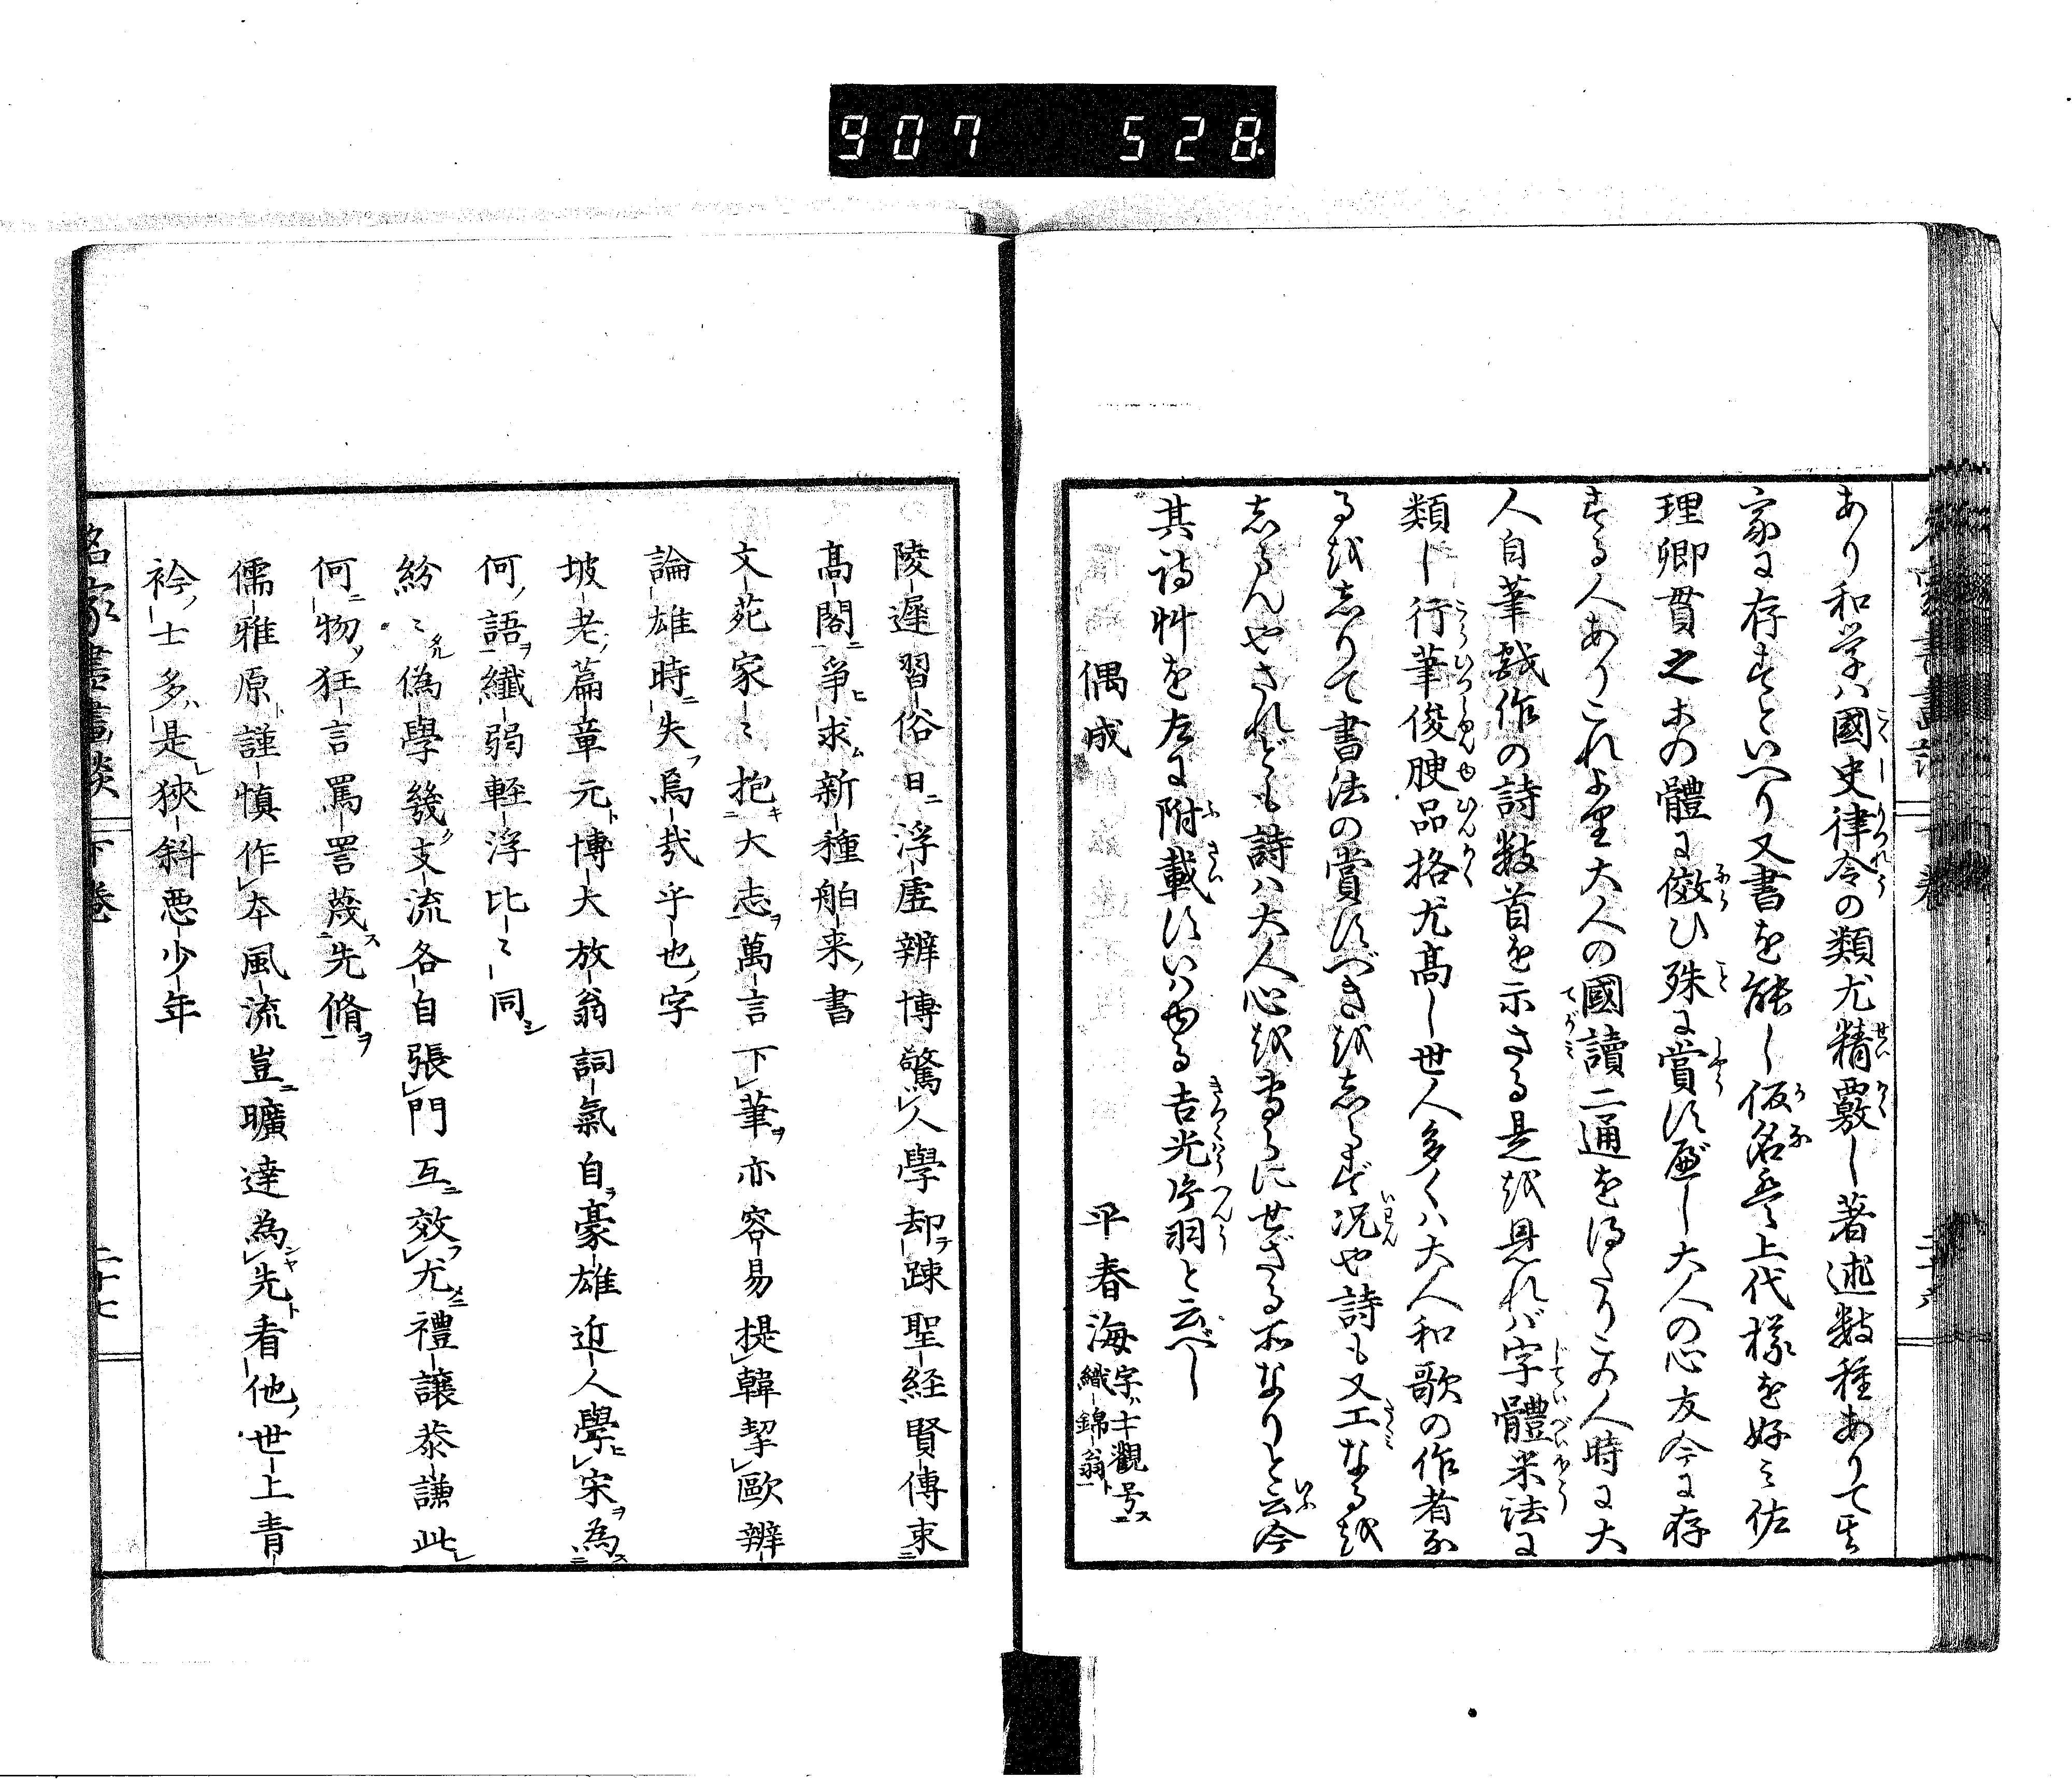 907 528
あり和学ハ國史律令の類尤精覈し著述数種ありて其
家に存すといへり又書を能し仮名は上代様を好み佐
理卿貫之等の體に倣ひ殊に賞すべし大人の心友今に存
する人ありこれより大人の國讀二通を得たりこの人時に大
人自筆戯作の詩数首を示さる是を見れバ字體米法に
類し行筆俊腴品格尤髙し世人多くハ大人和歌の作者な
るをしりて書法の賞すべきをしらず况や詩も又工なるを
しらんやされども詩ハ大人心を専らにせざる所なりと云今
其詩艸を左に附載すいはゆる吉光片羽と云べし
偶成
平春海
字ハ士觀号ス
織錦翁ト
陵遲習俗日ニ浮虛辨博驚人學却テ踈聖経賢傳束ニ
髙閣ニ爭ヒ求ム新種舶来ノ書
文苑家〻抱キ大志ヲ萬言下筆ヲ亦容易提韓挈歐辨
論雄時ニ失フ焉哉乎也ノ字
坡老ノ篇章元ト博大放翁詞氣自ラ豪雄近人學ヒ宋ヲ為ス
何ノ語ヲ纎弱軽浮比〻同シ
紛〻タル偽學幾ク支流各自張門互ニ效フ尤ニ禮讓恭謙此レ
何物ソ狂言罵詈蔑ス先脩ヲ
儒雅原ト謹慎作本風流豈ニ曠達為シヤ先ト看他ノ世上青
衿ノ士多ハ是レ狹斜悪少年
名家書畫談
下巻
二十七